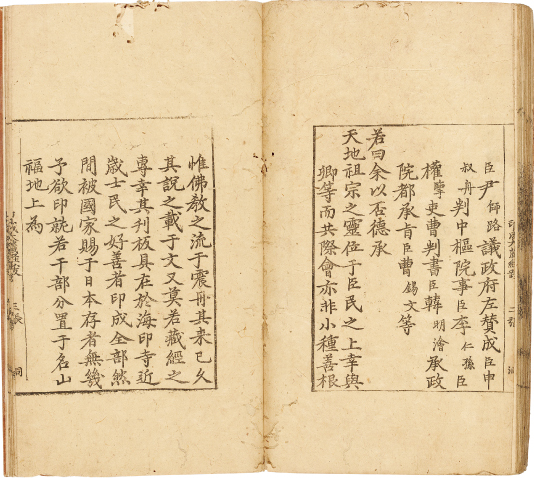 臣尹師路議政府左贊成臣申
叔舟判中樞院事臣李仁孫臣
權擥吏曹判書臣韓明澮承政
院都承旨臣曹錫文等
若曰余以否德承
天地祖宗之靈位于臣民之上幸與
卿等而共際會亦非小種善根
惟佛教之流于震丹其来已久
其說之載于文又莫若藏經之
專幸其刊板具在於海印寺近
歲士民之好善者印成全部然
間被國家賜于日本存者無幾
予欲印就若干部分置于名山
福地上為
三張